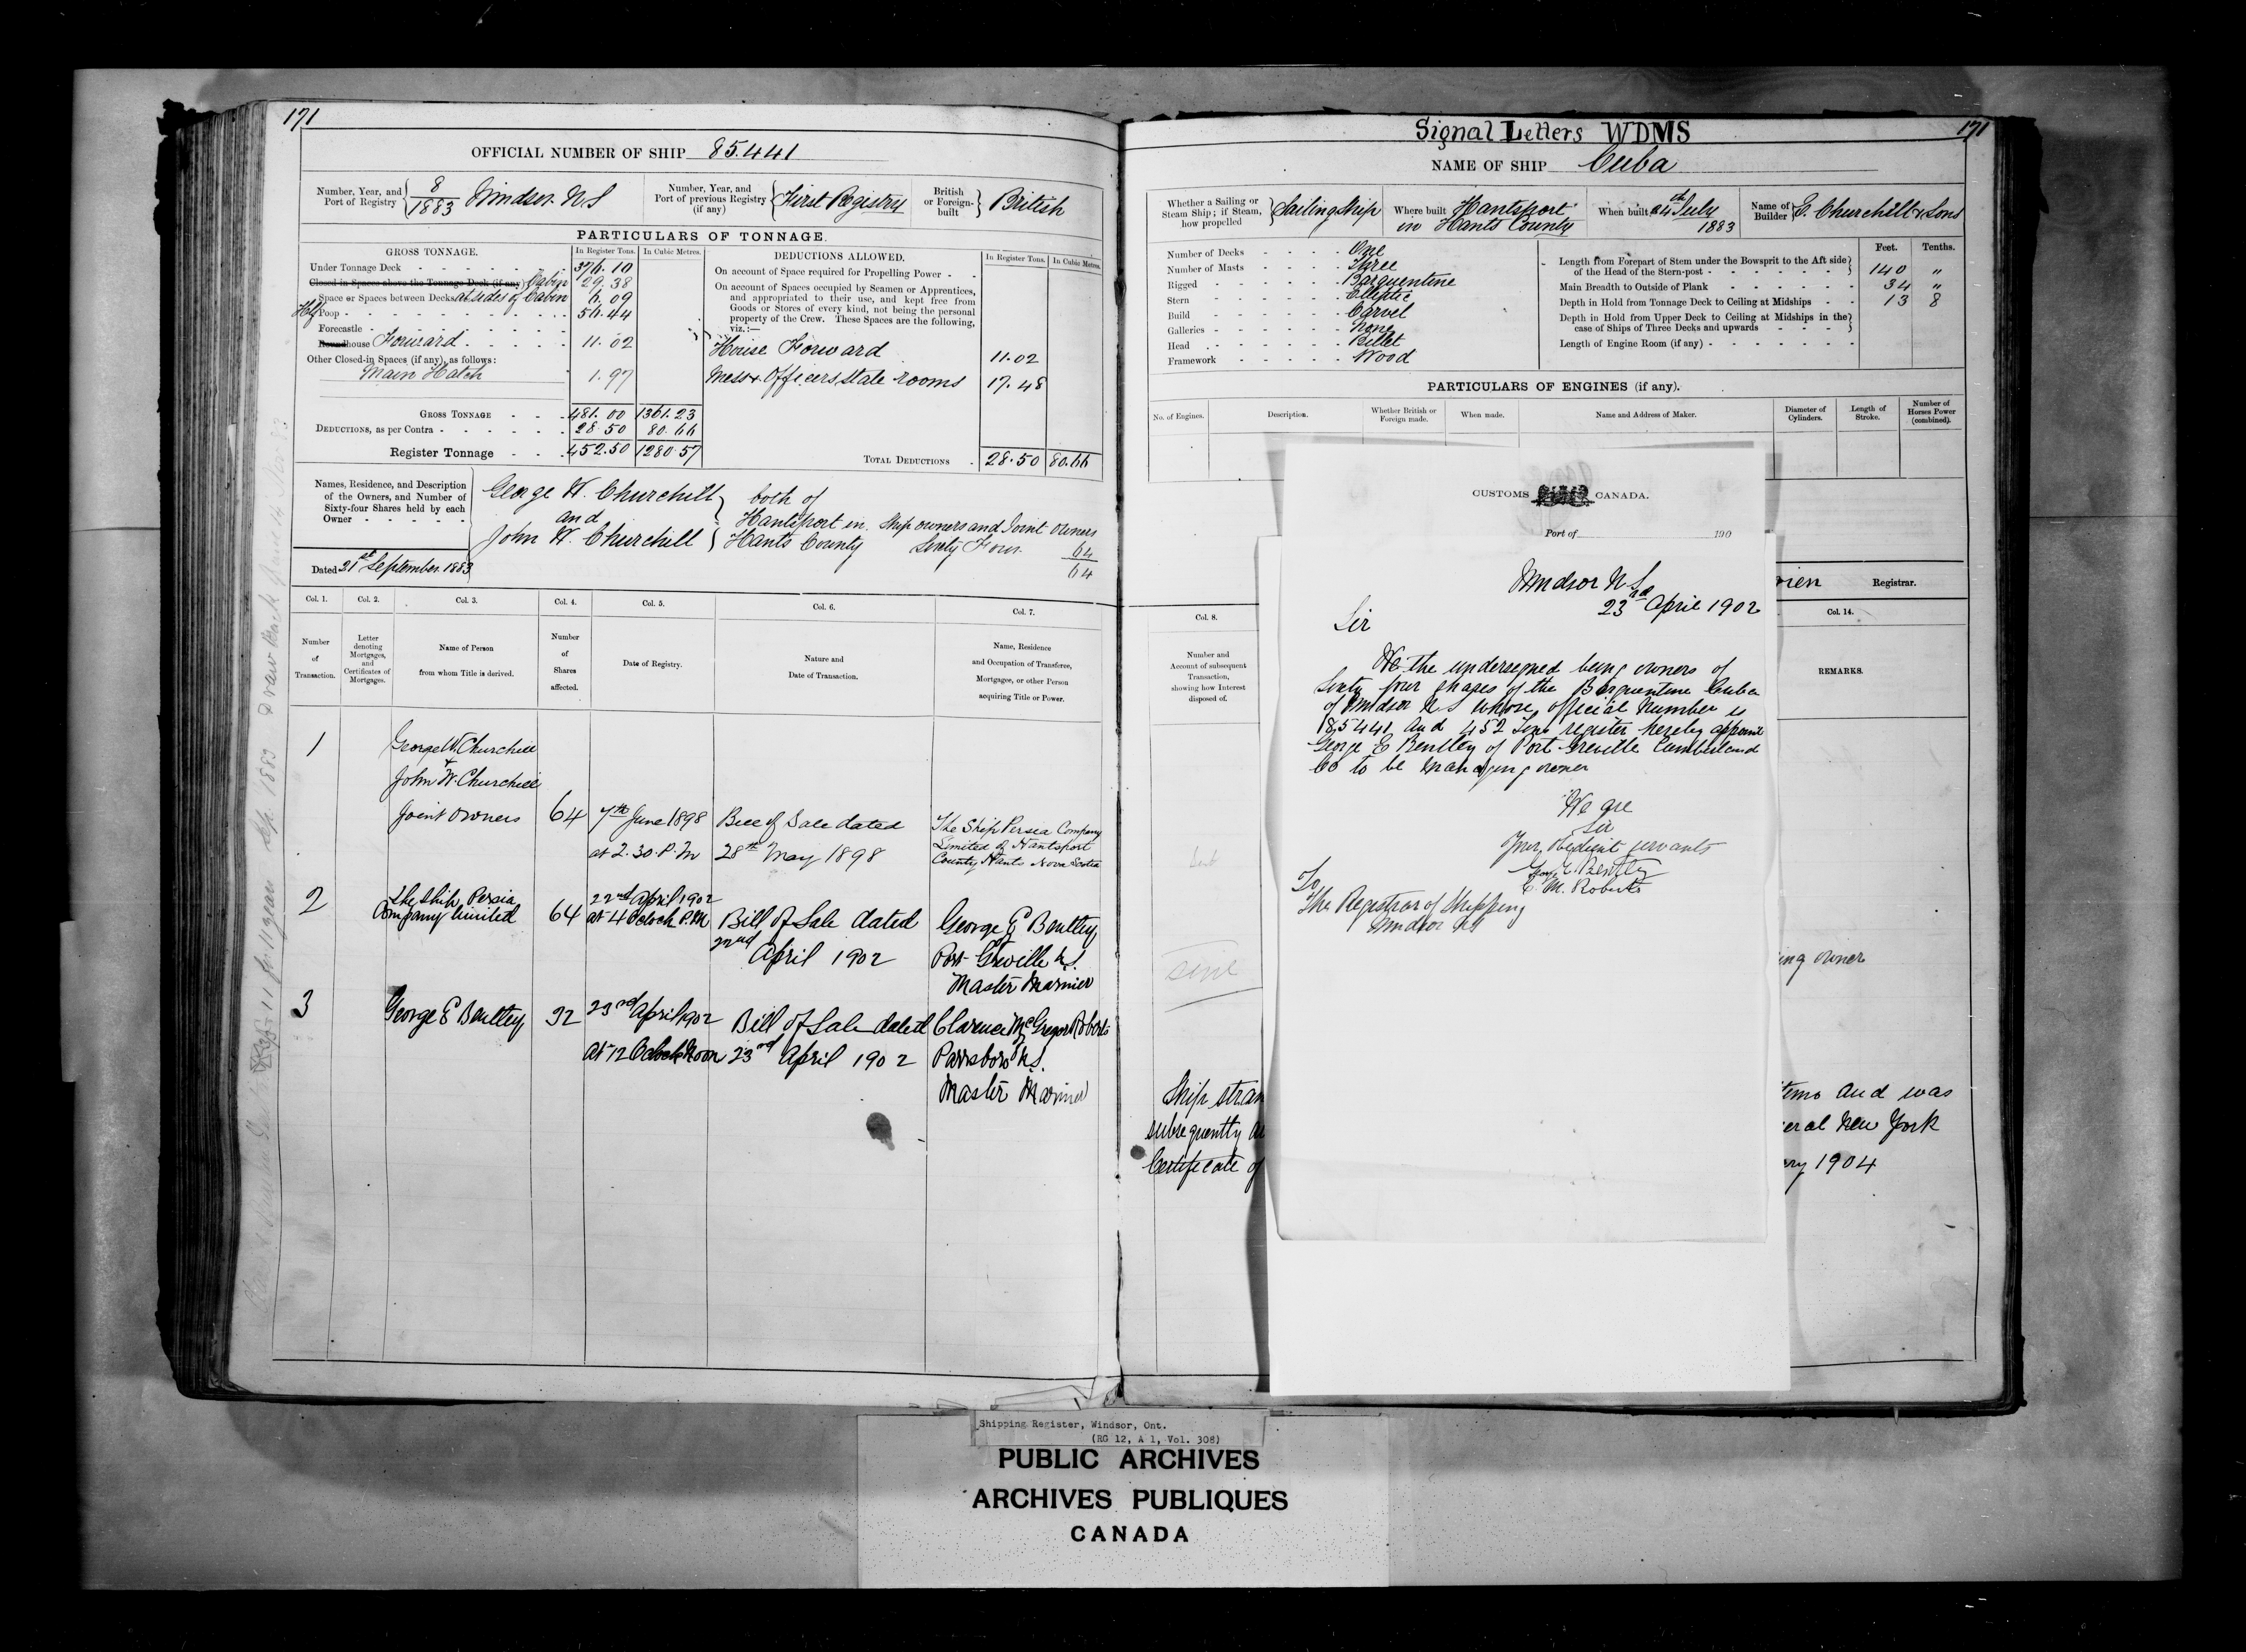 171
OFFICIAL NUMBER OF SHIP 85.441
Number, Year, and Port of Registry 8/1883 Windsor. N S
Number, Year, and Port of previous Registry (if any) First Registry
British or Foreign-built British
PARTICULARS OF TONNAGE.
GROSS TONNAGE. In Register Tons. In Cubic Metres.
Under Tonnage Deck 376.10
Closed-in Spaces above the Tonnage Deck (if any) Cabin 29.38
Space or Spaces between Decks at sides of Cabin 6.09
Half Poop 56.44
Forecastle
Roundhouse Forward 11.02
Other Closed-in Spaces (if any), as follows:
Main Hatch 1.97
GROSS TONNAGE 481.00 1361.23
DEDUCTIONS, as per Contra 28.50 80.66
Register Tonnage 452.50 1280.57
DEDUCTIONS ALLOWED. In Register Tons. In Cubic Metres.
On account of Space required for Propelling Power
On account of Spaces occupied by Seamen or Apprentices,
and appropriated to their use, and kept free from
Goods or Stores of every kind, not being the personal
property of the Crew. These Spaces are the following,
viz.:—
House Forward 11.02
Mess & Officers state rooms 17.48
TOTAL DEDUCTIONS 28.50 80.66
Names, Residence, and Description
of the Owners, and Number of
Sixty-four Shares held by each
Owner
George W. Churchill
and
John W. Churchill
both of
Hantsport in Ship owners and Joint owners
Hants County Sixty Four 64
64
Dated 21st September 1883
Col. 1. Col. 2. Col. 3. Col. 4. Col. 5. Col. 6. Col. 7.
Number of Transaction.
Letter denoting Mortgages, and Certificates of Mortgages.
Name of Person from whom Title is derived.
Number of Shares affected.
Date of Registry.
Nature and Date of Transaction.
Name, Residence and Occupation of Transferee, Mortgagee, or other Person acquiring Title or Power.
1
George W. Churchill
&
John W. Churchill
Joint owners 64 7th June 1898 Bill of Sale dated The Ship Persia Company
at 2.30. P. M 28th May 1898 Limited of Hantsport
County Hants Nova Scotia
2
The Ship Persia 22nd April 1902
Company Limited 64 at 4 Oclock P.M Bill of Sale dated George E Bentley
22nd April 1902 Port Greville N.S.
Master Mariner
3
George E Bentley 32 23rd April 1902 Bill of Sale dated Clarence McGregor Roberts
at 12 Oclock Noon 23rd April 1902 Parrsboro N.S.
Master Mariner
Signal Letters WDMS
171
NAME OF SHIP Cuba
Whether a Sailing or Steam Ship; if Steam, how propelled Sailing Ship
Where built Hantsport in Hants County
When built 24th July 1883
Name of Builder E. Churchill & Sons
Number of Decks One
Number of Masts Three
Rigged Barquentine
Stern Elliptic
Build Carvel
Galleries None
Head Billet
Framework Wood
Feet. Tenths.
Length from Forepart of Stem under the Bowsprit to the Aft side
of the Head of the Stern-post 140 "
Main Breadth to Outside of Plank 34 "
Depth in Hold from Tonnage Deck to Ceiling at Midships 13 8
Depth in Hold from Upper Deck to Ceiling at Midships in the
case of Ships of Three Decks and upwards
Length of Engine Room (if any)
PARTICULARS OF ENGINES (if any).
No. of Engines. Description. Whether British or Foreign made. When made. Name and Address of Maker. Diameter of Cylinders. Length of Stroke. Number of Horses Power (combined).
Registrar.
Col. 8. Col. 14.
Number and Account of subsequent Transaction, showing how Interest disposed of.
REMARKS.
CUSTOMS CANADA.
Port of 190
Windsor N S
23rd April 1902
Sir
We the undersigned being owners of
Sixty four shares of the Barquentine Cuba
of Windsor N S whose official number is
85441 and 452 Tons register hereby appoint
George E Bentley of Port Greville Cumberland
Co to be managing owner
We are
Sir
Your obedient servants
Geo. E. Bentley
C. M. Roberts
To
The Registrar of Shipping
Windsor NS
owner
Ship
and was
subsequently
New York
Certificate of
1904
Shipping Register, Windsor, Ont.
(RG 12, A 1, Vol. 308)
PUBLIC ARCHIVES
ARCHIVES PUBLIQUES
CANADA